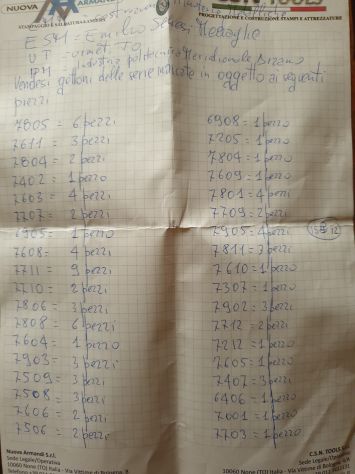 NUOVA ARMANDI
C.S.N. TOOLS
STAMPAGGIO E
PROGETTAZIONE E COSTRUZIONE STAMPI E ATTREZZATURE
ESM = Emilio Senesi Medaglie
UT =
IPM = Industria politecnica Meridionale
Vendesi gettoni delle serie indicate in oggetto ai seguenti
prezzi
7805 = 6 pezzi
7611 = 3 pezzi
7804 = 2 pezzi
7402 = 1 pezzo
7603 = 4 pezzi
7707 = 2 pezzi
6905 = 1 pezzo
7608 = 4 pezzi
7711 = 9 pezzi
7710 = 2 pezzi
7806 = 3 pezzi
7808 = 6 pezzi
7604 = 1 pezzo
7903 = 3 pezzi
7509 = 3 pezzi
7508 = 3 pezzi
7606 = 2 pezzi
7506 = 2 pezzi
6908 = 1 pezzo
7205 = 1 pezzo
7804 = 1 pezzo
7609 = 1 pezzo
7801 = 4 pezzi
7709 = 2 pezzi
7905 = 4 pezzi
7811 = 3 pezzi
7610 = 1 pezzo
7307 = 1 pezzo
7902 = 3 pezzi
7712 = 2 pezzi
7212 = 1 pezzo
7605 = 1 pezzo
7407 = 3 pezzi
6406 = 1 pezzo
7001 = 1 pezzo
7703 = 1 pezzo
Nuova Armandi S.r.l.
Sede Legale/Operativa
10060 None (TO) Italia - Via Vittime di Bologna,
C.S.N. TOOLS
Sede Legale/Operativa
10060 None (TO) Italia - Via Vittime di Bologna,